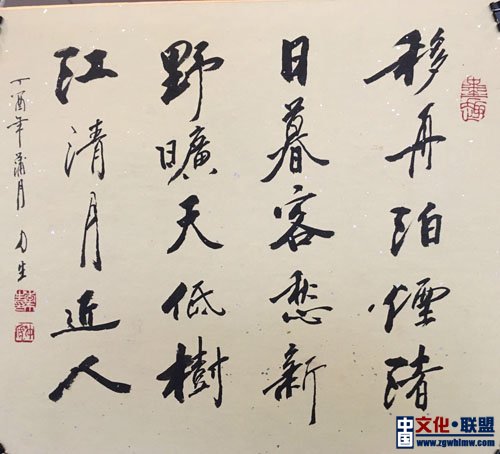 移舟泊煙渚
日暮客愁新
野曠天低樹
江清月近人
丁酉年蒲月
中国文化·联盟
www.zgwhlmw.com